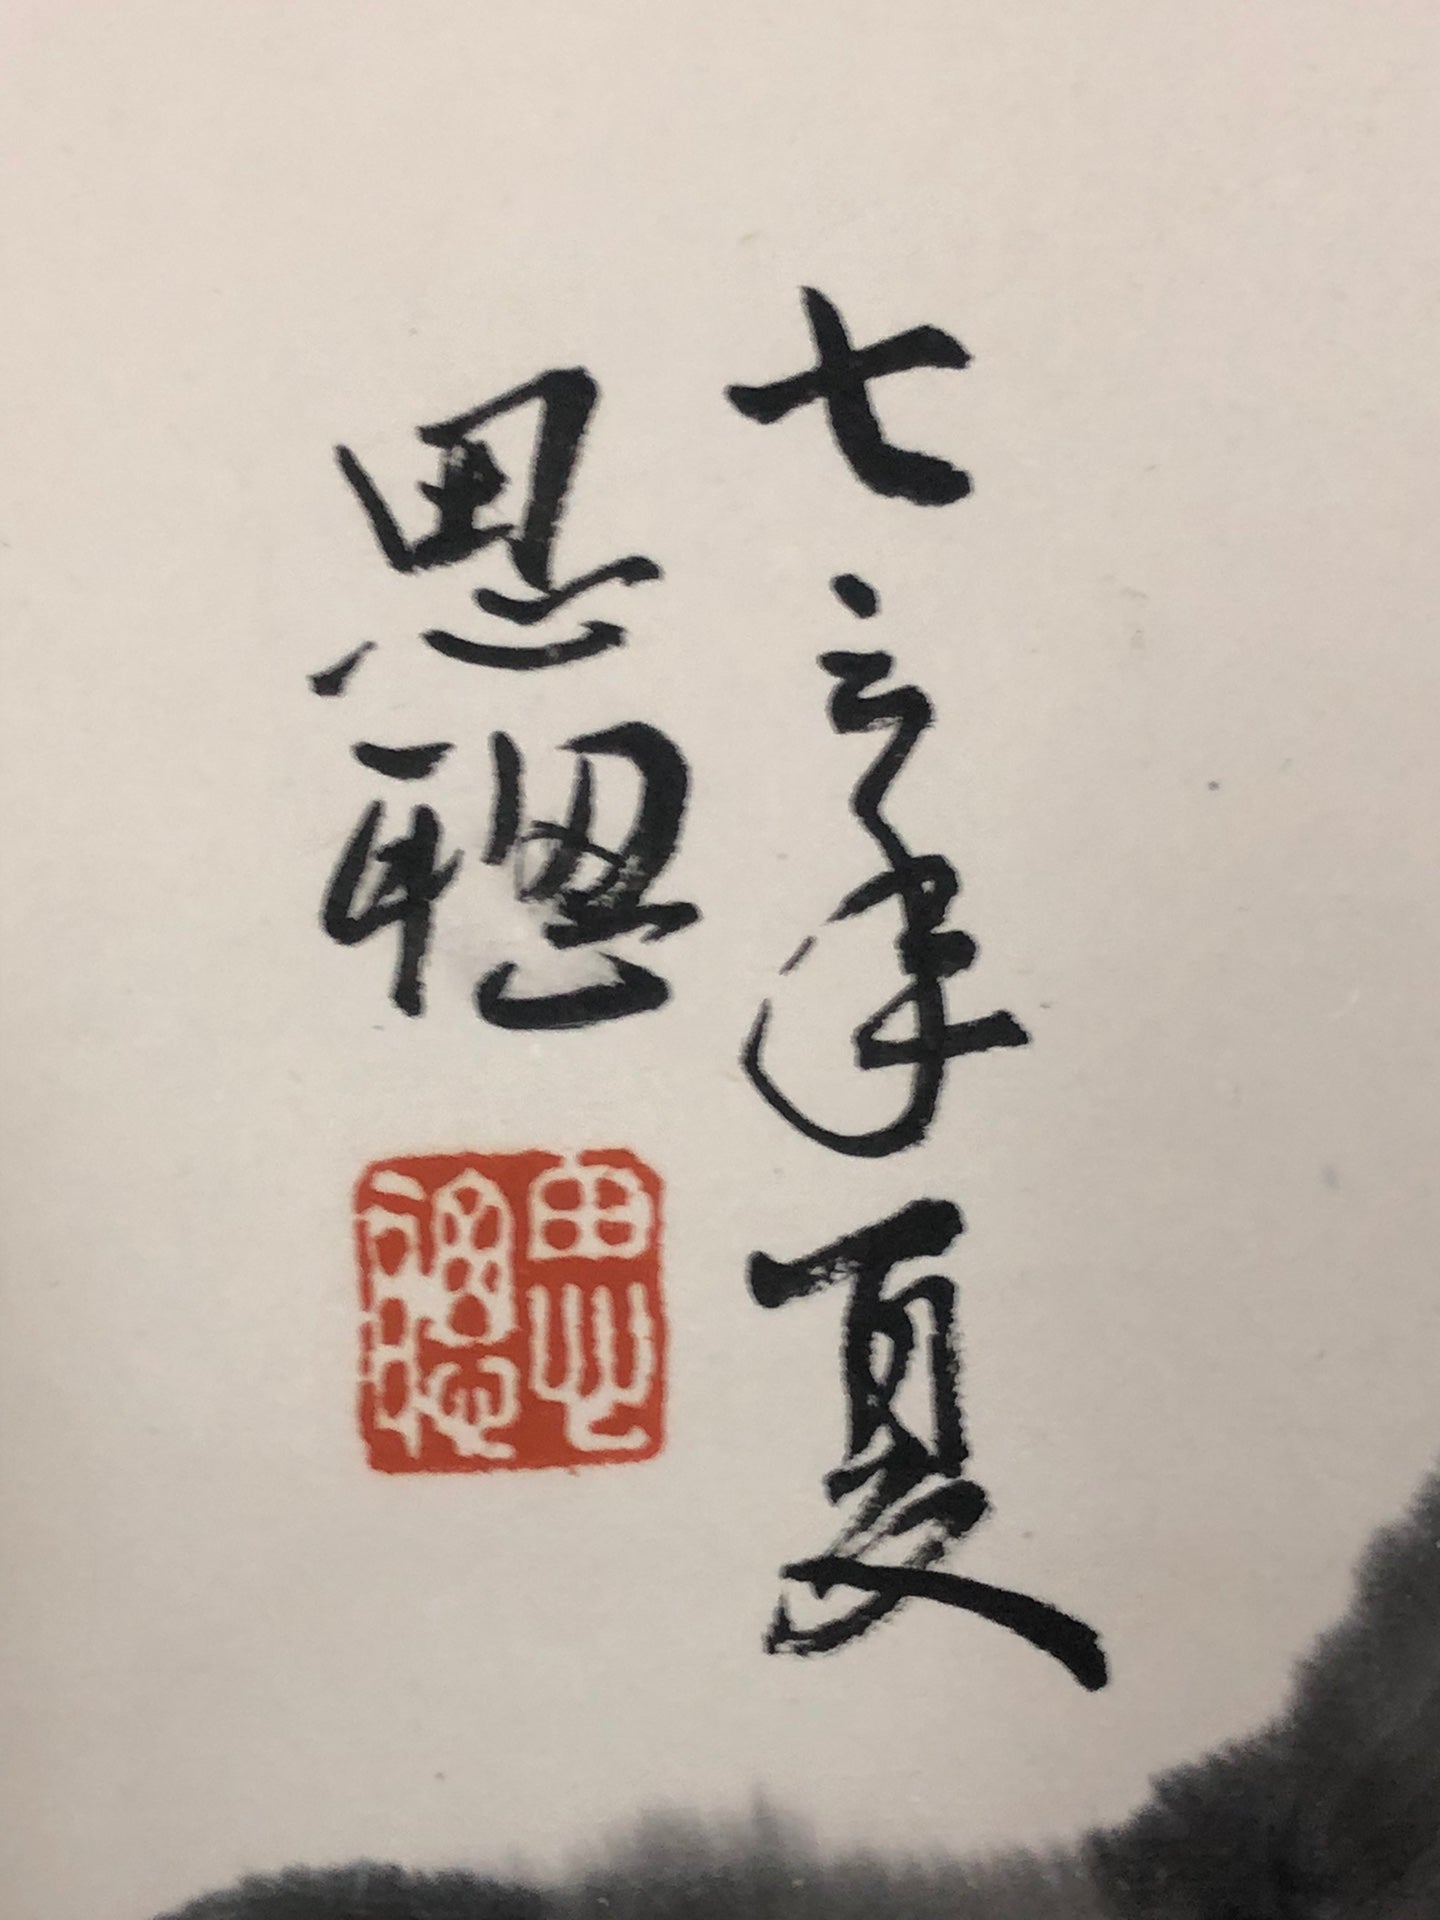 七三年夏
思聰
思聰